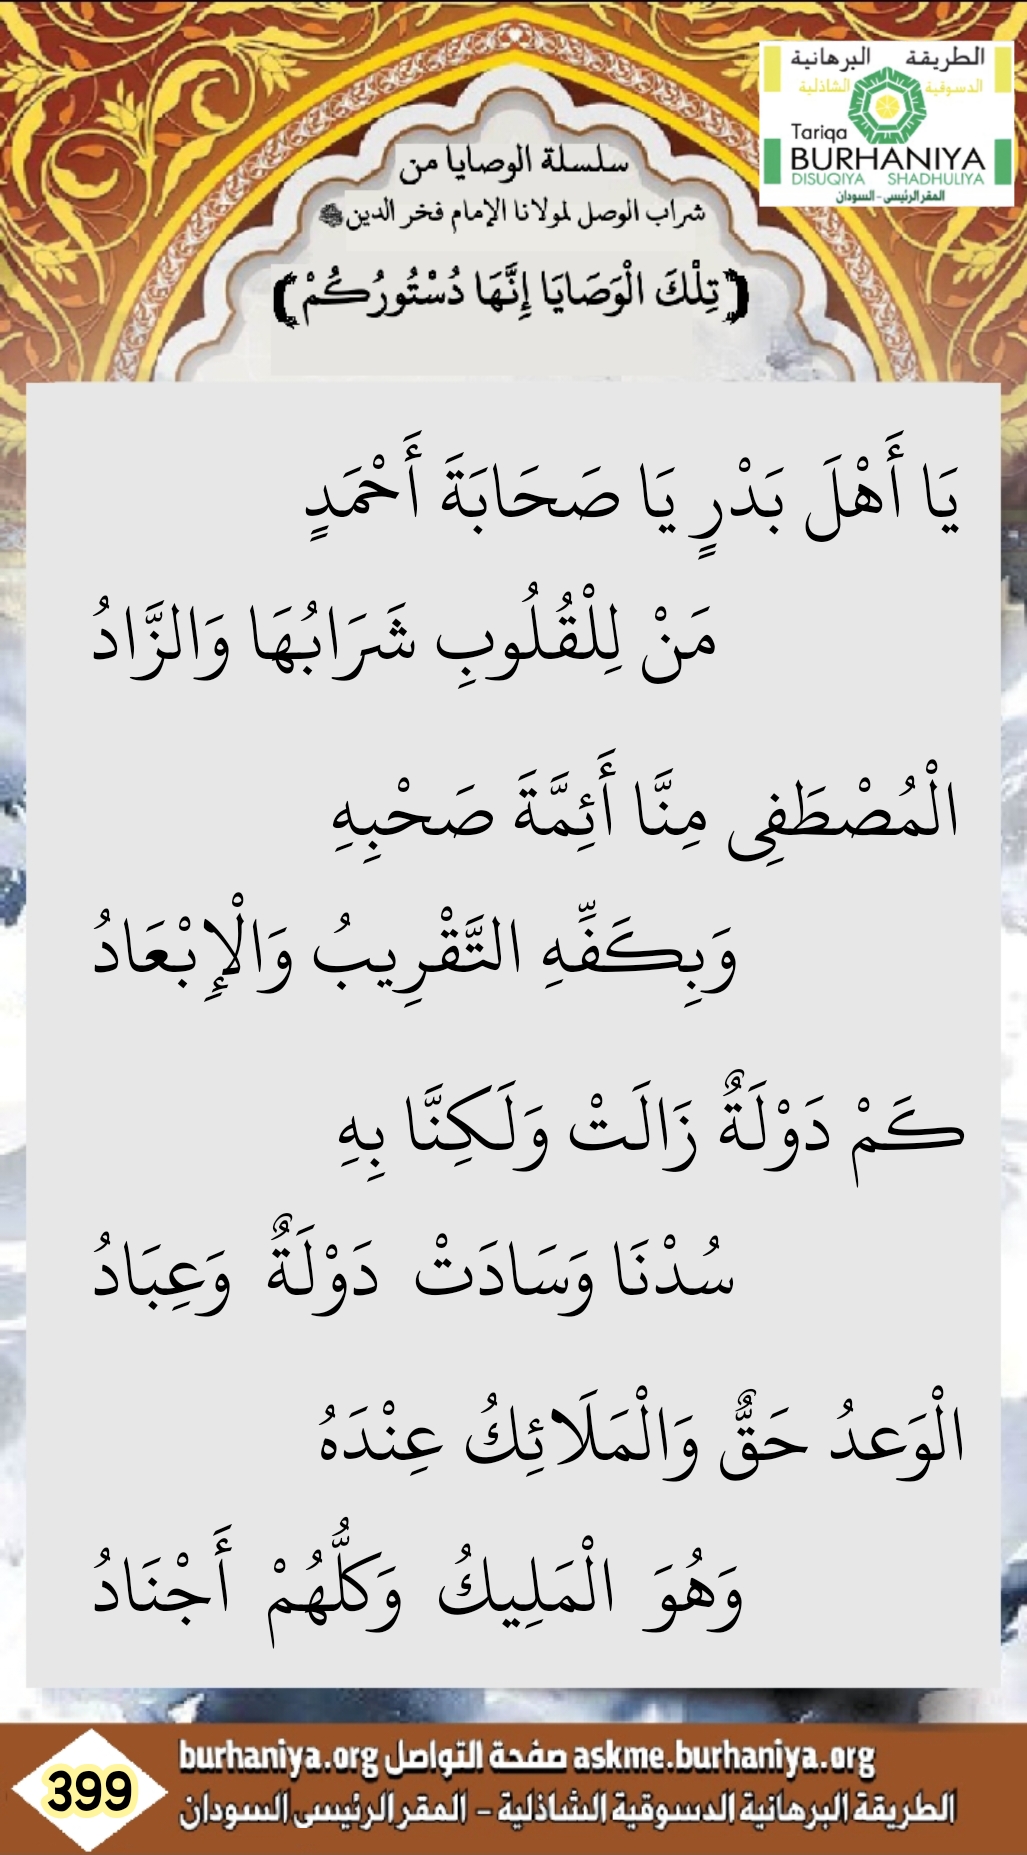 الطريقة البرهانية
الدسوقية الشاذلية
Tariqa
BURHANIYA
DISUQIYA SHADHULIYA
المقر الرئيسى - السودان
سلسلة الوصايا من
شراب الوصل لمولانا الإمام فخر الدين
﴿تِلْكَ الْوَصَايَا إِنَّهَا دُسْتُورُكُمْ﴾
يَا أَهْلَ بَدْرٍ يَا صَحَابَةَ أَحْمَدٍ
مَنْ لِلْقُلُوبِ شَرَابُهَا وَالزَّادُ
الْمُصْطَفِى مِنَّا أَئِمَّةَ صَحْبِهِ
وَبِكَفِّهِ التَّقْرِيبُ وَالْإِبْعَادُ
كَمْ دَوْلَةٌ زَالَتْ وَلَكِنَّا بِهِ
سُدْنَا وَسَادَتْ دَوْلَةٌ وَعِبَادُ
الْوَعدُ حَقٌّ وَالْمَلَائِكُ عِنْدَهُ
وَهُوَ الْمَلِيكُ وَكُلُّهُمْ أَجْنَادُ
burhaniya.org صفحة التواصل askme.burhaniya.org
الطريقة البرهانية الدسوقية الشاذلية - المقر الرئيسى السودان
399